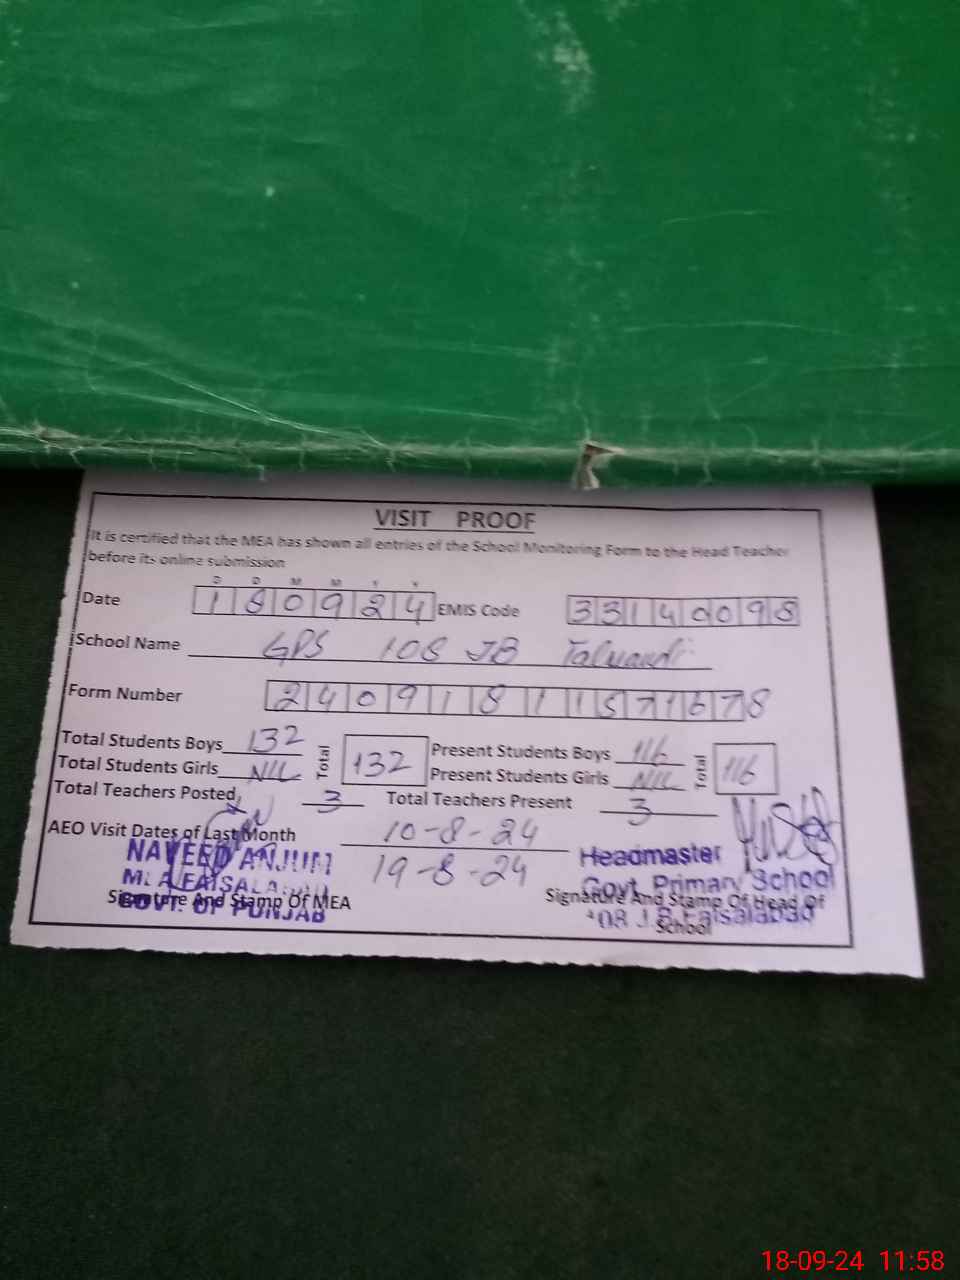 VISIT PROOF
It is certified that the MEA has shown all entries of the School Monitoring Form to the Head Teacher
before its online submission
D D M M Y Y
Date 1 8 0 9 2 4 EMIS Code 3 3 1 4 0 0 9 8
School Name GPS 108 JB Talwandi
Form Number 2 4 0 9 1 8 1 1 5 7 1 6 7 8
Total Students Boys 132 Total 132 Present Students Boys 116 Total 116
Total Students Girls NIL Present Students Girls NIL
Total Teachers Posted 3 Total Teachers Present 3
AEO Visit Dates of Last Month 10-8-24
19-8-24
NAVEED ANJUM
MEA FAISALABAD
GOVT. OF PUNJAB
Signature And Stamp Of MEA
Headmaster
Govt. Primary School
108 J.B Faisalabad
Signature And Stamp Of Head Of
School
18-09-24 11:58